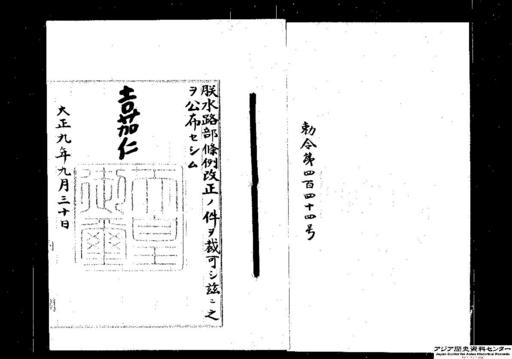 勅令第四百四十四号
朕水路部條例改正ノ件ヲ裁可シ茲ニ之
ヲ公布セシム
嘉仁
天皇
御璽
大正九年九月三十日
アジア歴史資料センター
Japan Center for Asian Historical Records